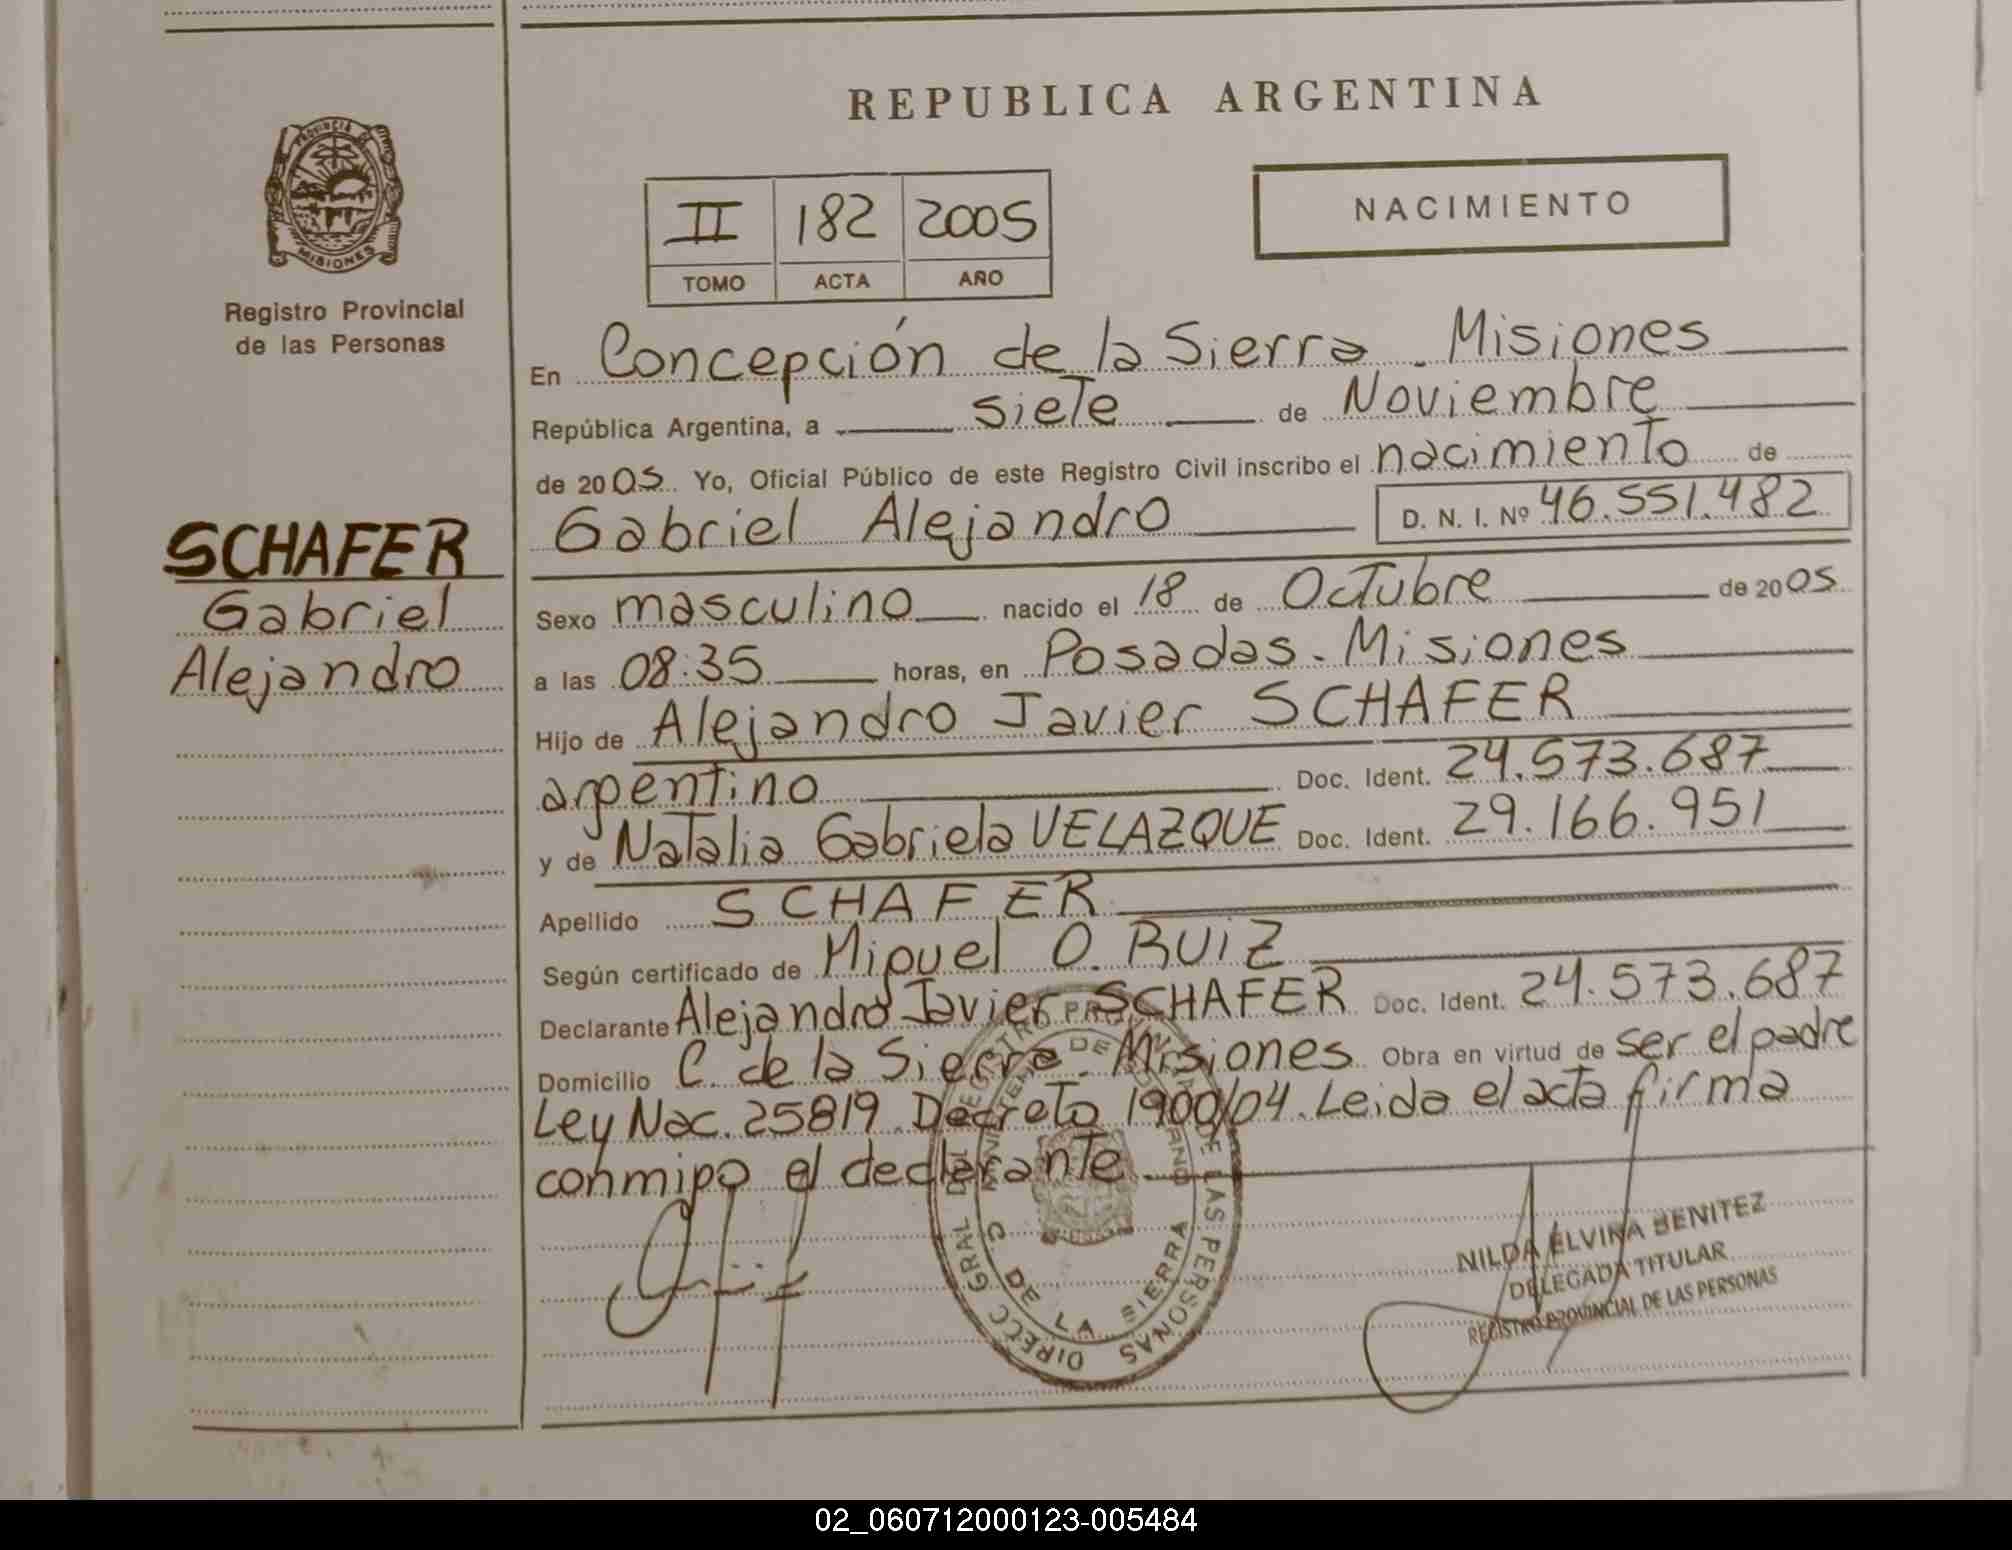 REPUBLICA ARGENTINA
PROVINCIA DE
MISIONES
Registro Provincial
de las Personas
II 182 2005
TOMO ACTA AÑO
NACIMIENTO
En Concepción de la Sierra - Misiones
República Argentina, a siete de Noviembre
de 2005 Yo, Oficial Público de este Registro Civil inscribo el nacimiento de
Gabriel Alejandro D. N. I. Nº 46.551.482
SCHAFER
Gabriel
Alejandro
Sexo masculino nacido el 18 de Octubre de 2005
a las 08:35 horas, en Posadas - Misiones
Hijo de Alejandro Javier SCHAFER
argentino Doc. Ident. 24.573.687
y de Natalia Gabriela VELAZQUE Doc. Ident. 29.166.951
Apellido SCHAFER
Según certificado de Miguel O. RUIZ
Declarante Alejandro Javier SCHAFER Doc. Ident. 24.573.687
Domicilio C. de la Sierra - Misiones Obra en virtud de ser el padre
Ley Nac. 25819 Decreto 1900/04. Leida el acta firma
conmigo el declarante
DIRECC GRAL DEL REGISTRO PROVINCIAL DE LAS PERSONAS
C. DE LA SIERRA
NILDA ELVINA BENITEZ
DELEGADA TITULAR
REGISTRO PROVINCIAL DE LAS PERSONAS
02_060712000123-005484